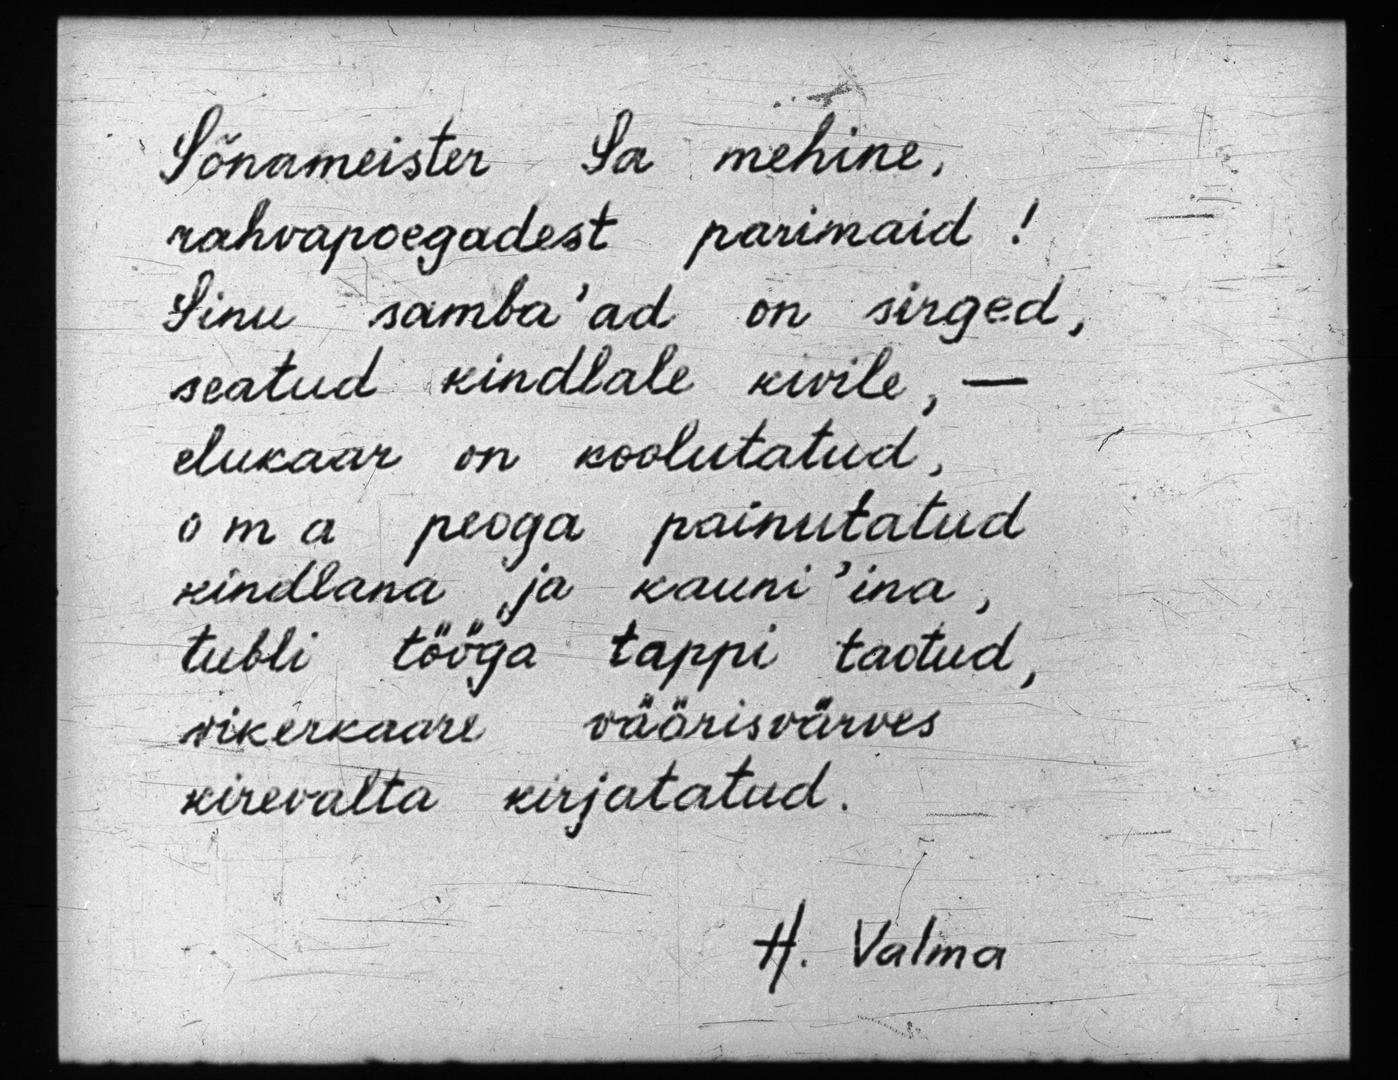 Sõnameister Sa mehine,
rahvapoegadest parimaid !
Sinu samba'ad on sirged,
seatud kindlale kivile, —
elukaar on koolutatud,
o m a peoga painutatud
kindlana ja kauni'ina,
tubli tööga tappi taotud,
vikerkaare väärisvärves
kirevalta kirjatatud.
H. Valma